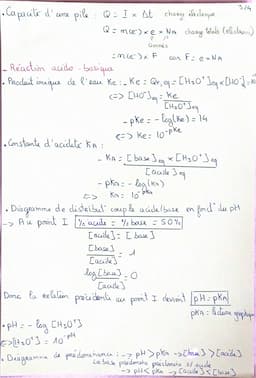 3/4
• Capacité d'une pile : Q = I × Δt charge électrique
Q = n(e⁻) × e × NA charge totale (électrons)
= n(e⁻) × F car F = e × NA
- Réaction acido-basique
• Produit ionique de l'eau Ke : - Ke = Qr,eq = [H3O⁺]eq × [HO⁻]eq = 10
<=> [HO⁻]eq = Ke / [H3O⁺]eq
- pKe = -log(Ke) = 14
<=> Ke = 10^-pKe
• Constante d'acidité KA :
- KA = [base]eq × [H3O⁺]eq / [acide]eq
- pKA = -log(KA)
<=> KA = 10^-pKA
• Diagramme de distribut° couple acide/base en fonct° du pH
-> Au point I % acide = % base = 50%
[acide] = [base]
[base] / [acide] = 1
log [base] / [acide] = 0
Donc la relation précédente au point I devient pH = pKA
pKA = lecture graphique
• pH = -log [H3O⁺]
<=> [H3O⁺] = 10^-pH
• Diagramme de prédominance : -> pH > pKA -> [base] > [acide]
La base prédomine
-> pH < pKA -> [acide] < [base]